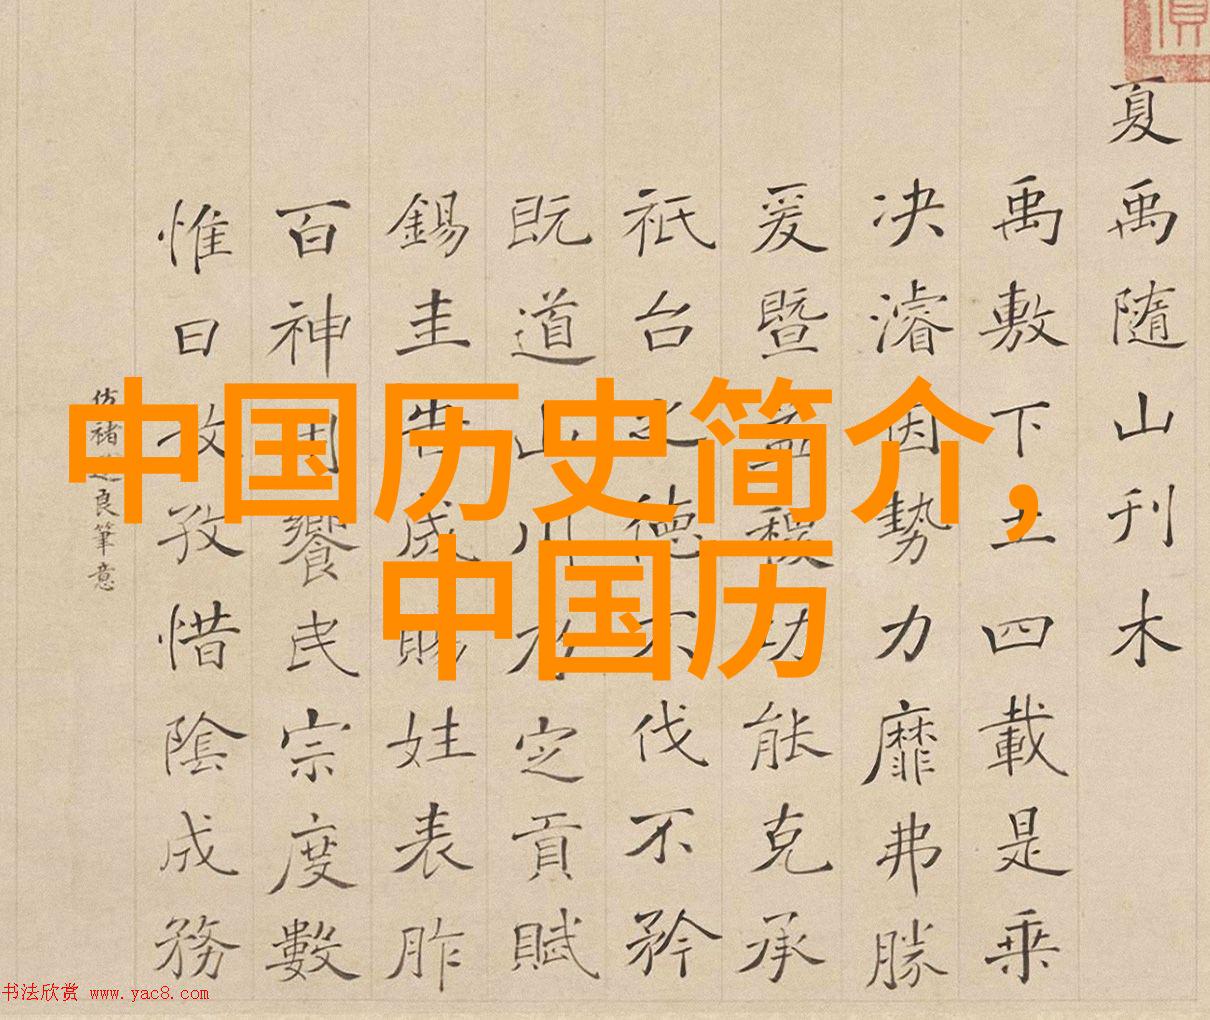 夏禹隨山刊木
禹敷下土四載是乘
决濬因勢力靡弗勝
爰暨益稷功能克承
祇台之德不伐不矜
既道山川定貢賦
錫圭告成賜姓表胙
百神饗民宗度數
惟日孜孜惜陰成務
仿褚遂良筆意
中国历史简介，
中国历
书法欣赏 www.yac8.com